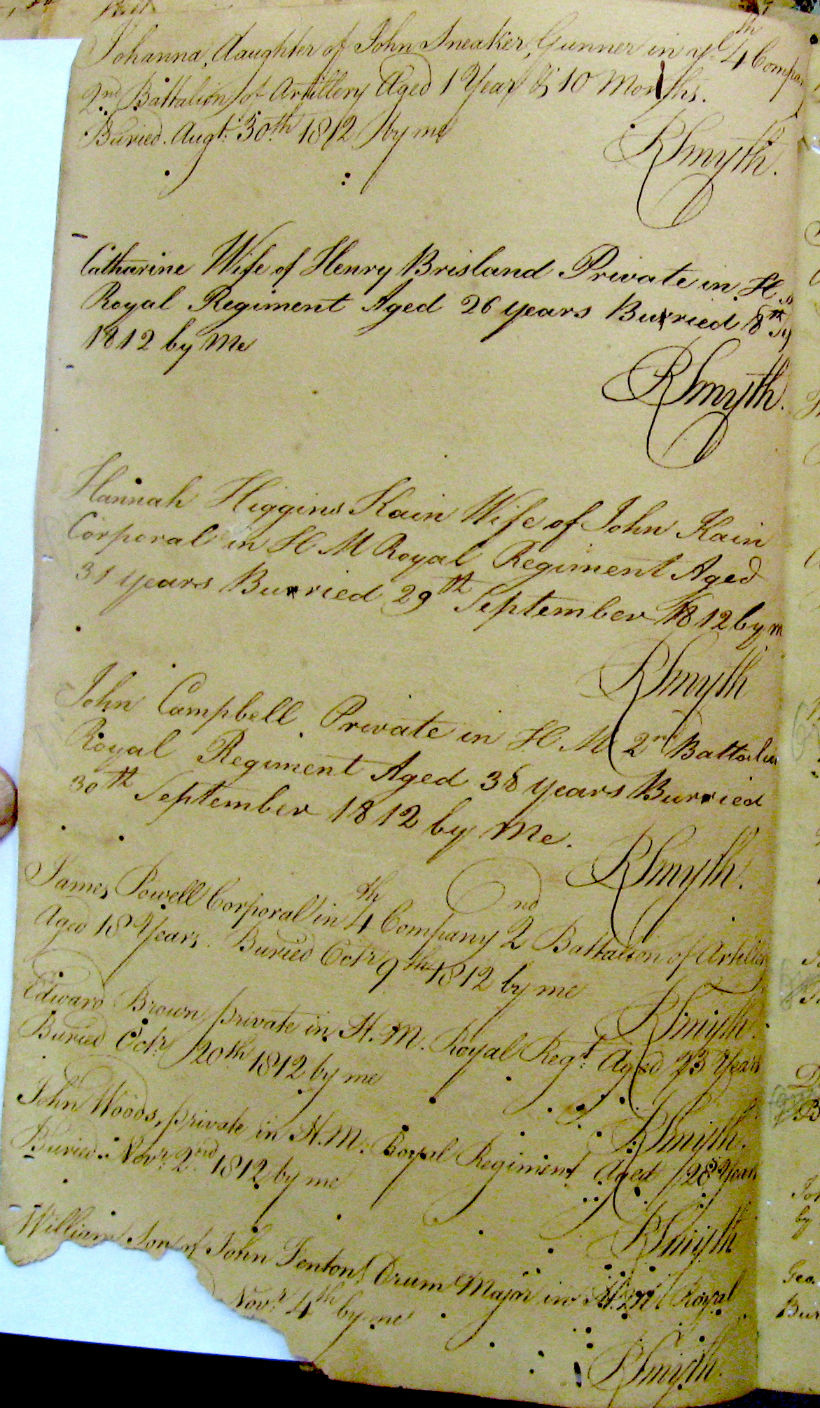 Johanna, daughter of John Sneaker, Gunner in ye. 4th Compan
2nd Battalion of Artillery Aged 1 Year & 10 Months.
Buried. Augt. 30th 1812 by me
RSmyth.
Catharine Wife of Henry Brisland Private in H
Royal Regiment Aged 26 years Burried 8th
1812 by Me
RSmyth.
Hannah Higgins Kain Wife of John Kain
Corporal in H M Royal Regiment Aged
31 years Burried 29th September 1812 by m
RSmyth
John Campbell Private in H M 2nd Battalion
Royal Regiment Aged 38 years Burried
30th September 1812 by Me.
RSmyth.
James Powell Corporal in 4th Company 2nd Battalion of Artillery
Aged 18 Years. Buried Octr 9th 1812 by me
RSmyth.
Edward Brown private in H. M. Royal Regt. Aged 23 Years
Buried Octr. 20th 1812 by me
RSmyth.
John Woods, private in H.M. Royal Regiment Aged 28 Years
Buried. Novr. 2nd 1812 by me
RSmyth
William Son of John Fenton Drum Major in H.M. Royal
Novr. 4th by me
RSmyth.